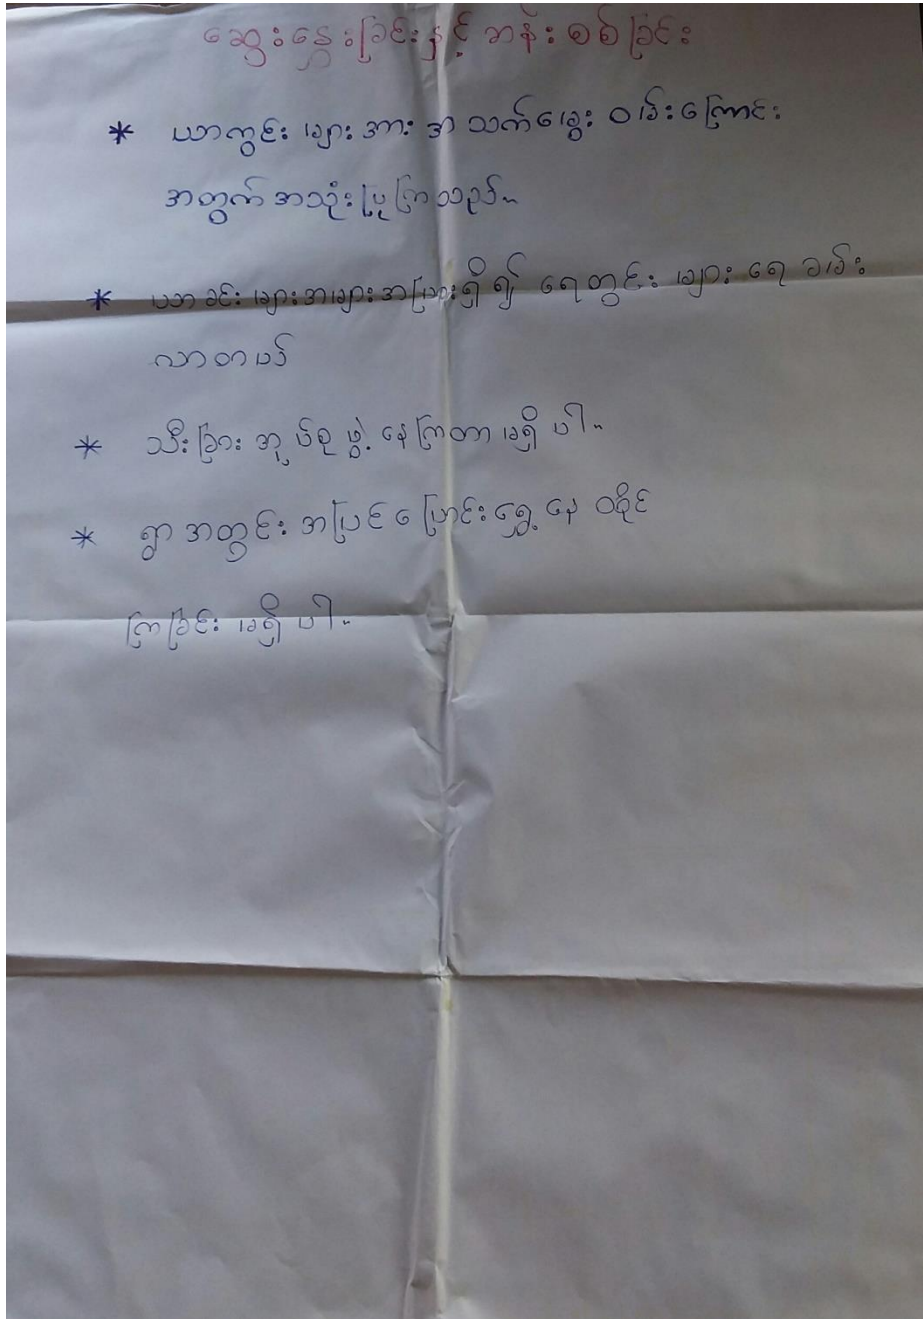 ဆွေးနွေးခြင်းနှင့် ဆန်းစစ်ခြင်း
* ယာကွင်း များ အား အ သက်မွေး ဝမ်းကြောင်း
အတွက် အသုံး ပြု ကြ သည်။
* ယာ ခင်း များ အများ အပြား ရှိ ၍ ရေတွင်း များ ရေ ခမ်း
လာ တယ်
* သီးခြား အုပ်စု ဖွဲ့ နေ ကြတာ မရှိ ပါ။
* ရွာ အတွင်း အပြင် ပြောင်းရွှေ့ နေ ထိုင်
ကြခြင်း မရှိ ပါ။